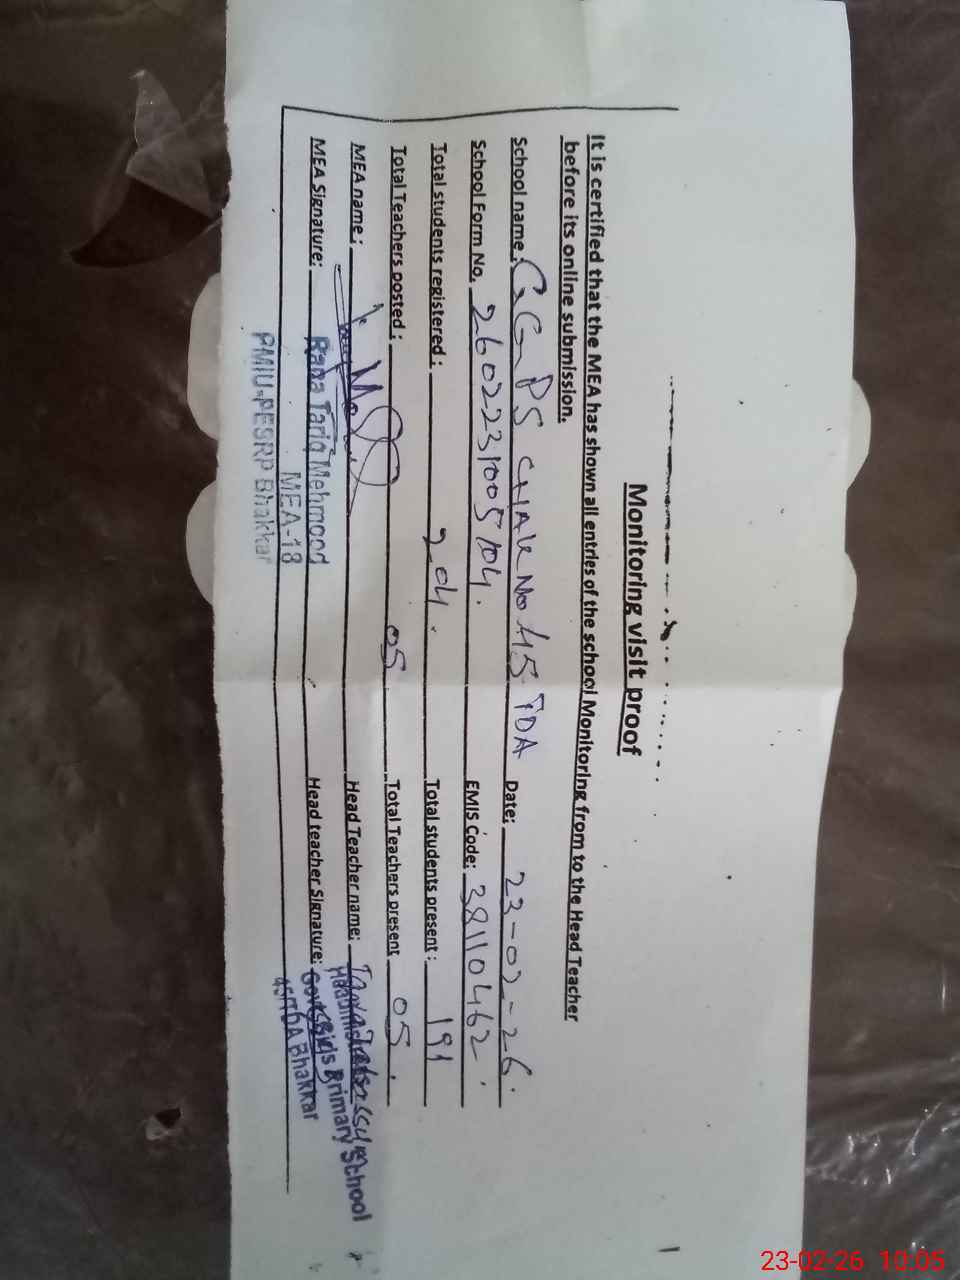 Monitoring visit proof
It is certified that the MEA has shown all entries of the school Monitoring from to the Head Teacher
before its online submission.
School name: GGPS CHAK No 45 TDA Date: 23-02-26.
School Form No. 2602231005104. EMIS Code: 38110462.
Total students registered: 204. Total students present: 191
Total Teachers posted: 05 Total Teachers present 05.
MEA name: Head Teacher name:
MEA Signature: Head teacher Signature:
Rana Tariq Mehmood
MEA-18
PMIU-PESRP Bhakkar
Headmistress
Govt. Girls Primary School
45/TDA Bhakkar
23-02-26 10:05